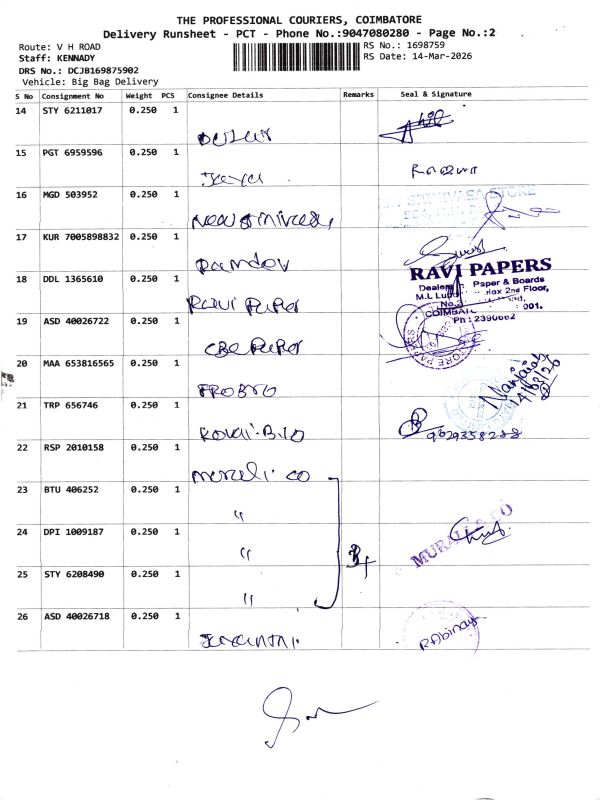 THE PROFESSIONAL COURIERS, COIMBATORE
Delivery Runsheet - PCT - Phone No.:9047080280 - Page No.:2
Route: V H ROAD
RS No.: 1698759
Staff: KENNADY
RS Date: 14-Mar-2026
DRS No.: DCJB169875902
Vehicle: Big Bag Delivery
S No Consignment No Weight PCS Consignee Details Remarks Seal & Signature
14 STY 6211017 0.250 1
15 PGT 6959596 0.250 1
Jaya
16 MGD 503952 0.250 1
SRINIVASA STORE
New
17 KUR 7005898832 0.250 1
Ramdev
18 DDL 1365610 0.250 1
Ravi Paper
RAVI PAPERS
Dealers Paper & Boards
M.L 2nd Floor,
No.
COIMBAT 001.
Ph : 2390662
19 ASD 40026722 0.250 1
CBE Paper
20 MAA 653816565 0.250 1
14/03/26
21 TRP 656746 0.250 1
Kovai. Bio
22 RSP 2010158 0.250 1
Murali. co
23 BTU 406252 0.250 1
"
24 DPI 1009187 0.250 1
"
MURALI & CO
25 STY 6208490 0.250 1
"
26 ASD 40026718 0.250 1
Jayanthi.